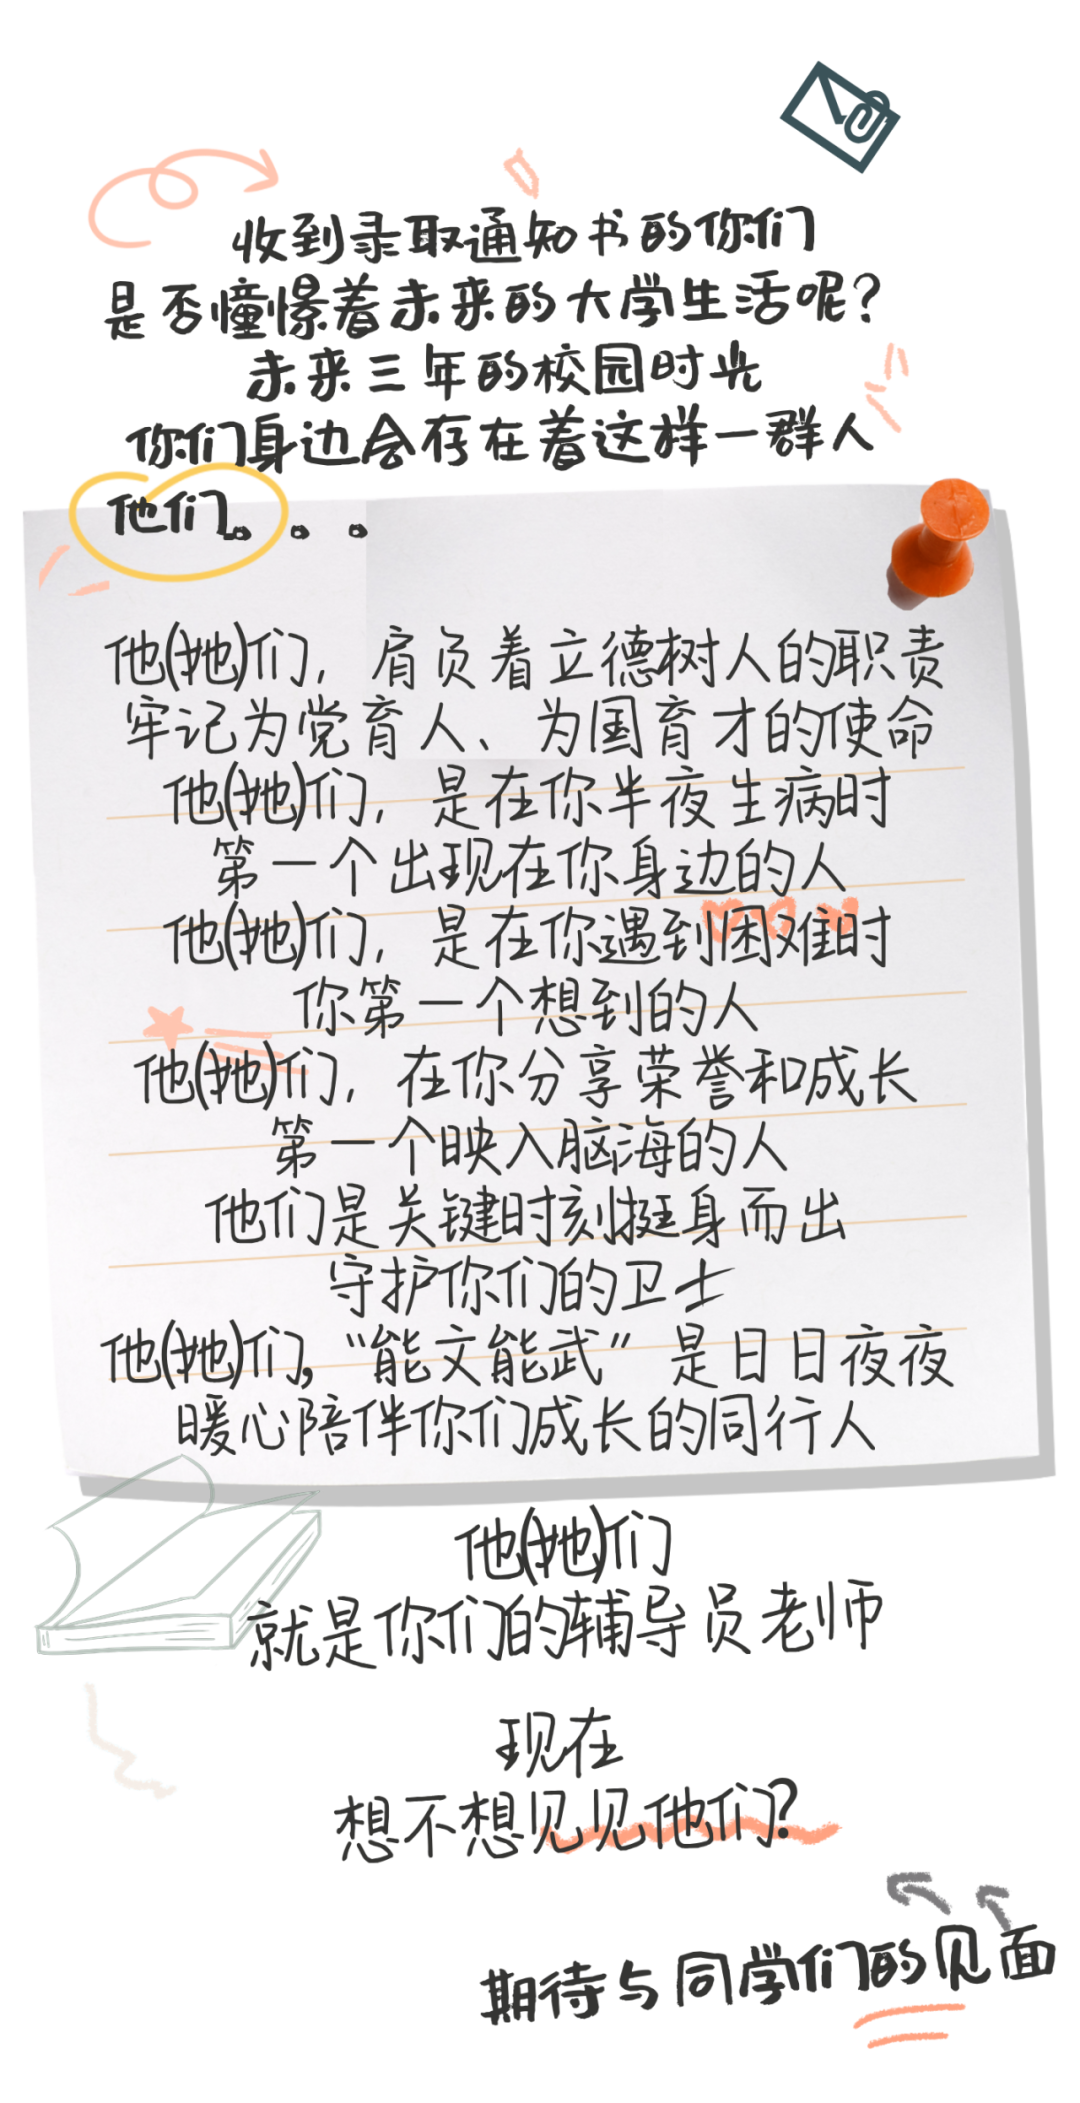 收到录取通知书的你们
是否憧憬着未来的大学生活呢？
未来三年的校园时光
你们身边会存在着这样一群人
他们。。。
他(她)们，肩负着立德树人的职责
牢记为党育人、为国育才的使命
他(她)们，是在你半夜生病时
第一个出现在你身边的人
他(她)们，是在你遇到困难时
你第一个想到的人
他(她)们，在你分享荣誉和成长
第一个映入脑海的人
他们是关键时刻挺身而出
守护你们的卫士
他(她)们，“能文能武”是日日夜夜
暖心陪伴你们成长的同行人
他(她)们
就是你们的辅导员老师
现在
想不想见见他们？
期待与同学们的见面